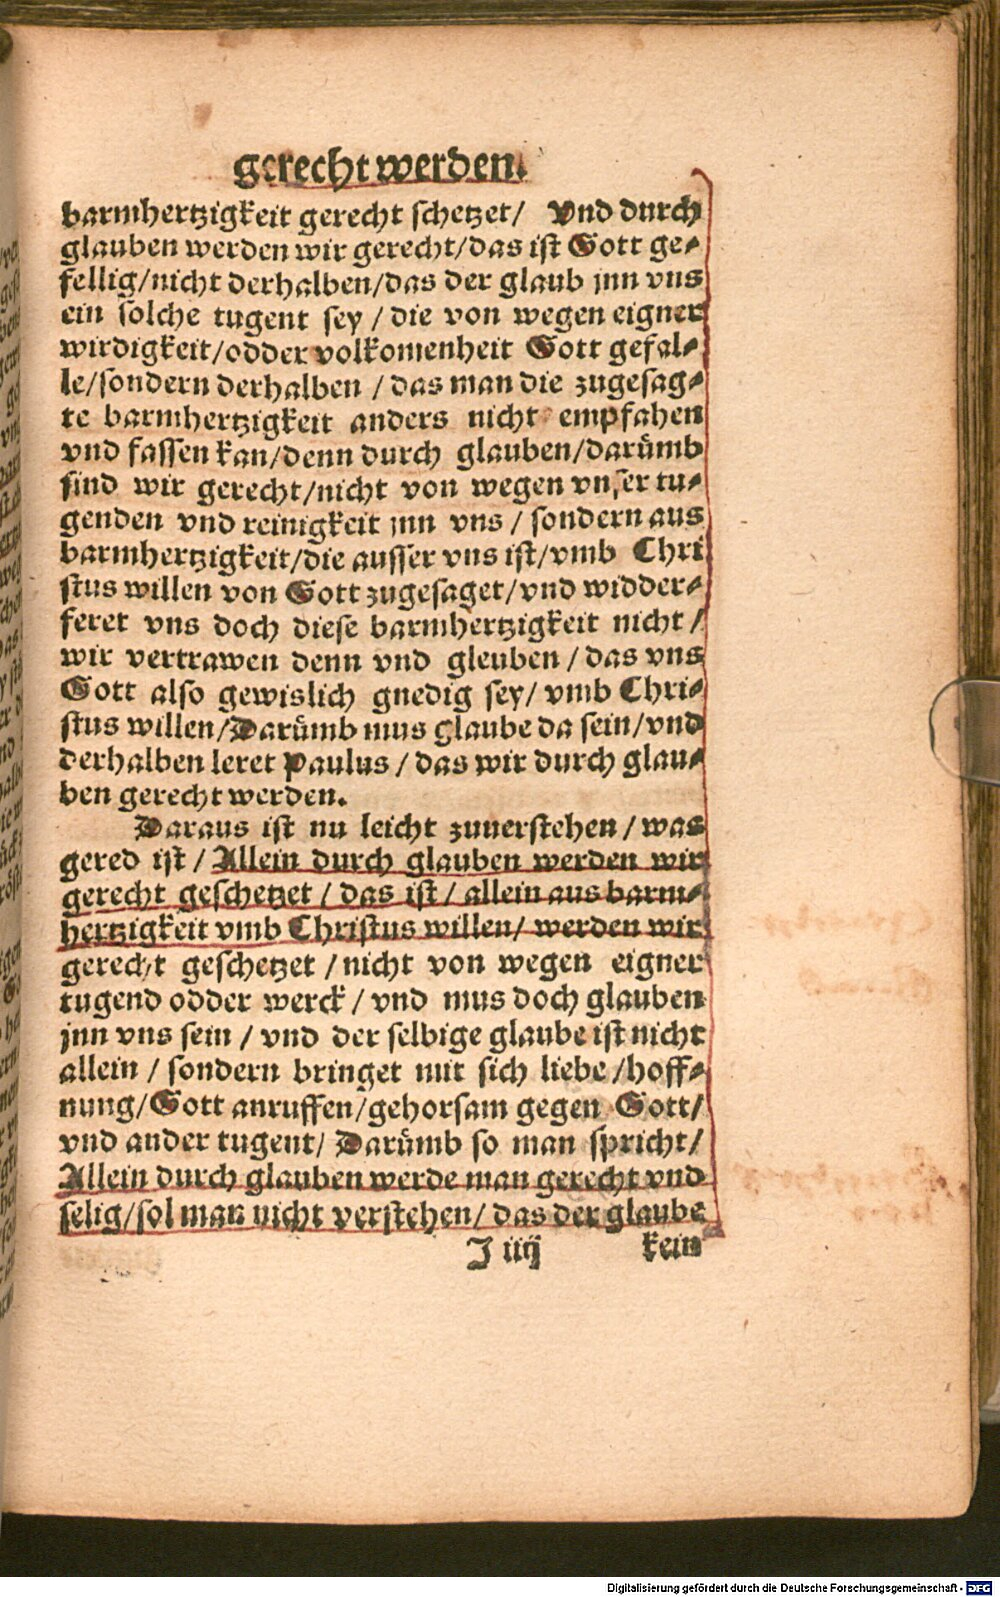 gerecht werden.
barmhertzigkeit gerecht schetzet/ Vnd durch
glauben werden wir gerecht/das ist Gott ge-
fellig/nicht derhalben/das der glaub jnn vns
ein solche tugent sey / die von wegen eigner
wirdigkeit/odder volkomenheit Gott gefal-
le/sondern derhalben / das man die zugesag-
te barmhertzigkeit anders nicht empfahen
vnd fassen kan/denn durch glauben/darümb
sind wir gerecht/nicht von wegen vnser tu-
genden vnd reinigkeit jnn vns / sondern aus
barmhertzigkeit/die ausser vns ist/vmb Chri
stus willen von Gott zugesaget/vnd widder-
feret vns doch diese barmhertzigkeit nicht/
wir vertrawen denn vnd gleuben / das vns
Gott also gewislich gnedig sey/ vmb Chri-
stus willen/Darümb mus glaube da sein/vnd
derhalben leret Paulus / das wir durch glau-
ben gerecht werden.
Daraus ist nu leicht zuuerstehen / was
gered ist / Allein durch glauben werden wir
gerecht geschetzet / das ist / allein aus barm-
hertzigkeit vmb Christus willen/ werden wir
gerecht geschetzet / nicht von wegen eigner
tugend odder werck / vnd mus doch glauben
jnn vns sein / vnd der selbige glaube ist nicht
allein / sondern bringet mit sich liebe / hoff-
nung/Gott anruffen/gehorsam gegen Gott/
vnd ander tugent/ Darümb so man spricht/
Allein durch glauben werde man gerecht vnd
selig/sol man nicht verstehen/ das der glaube
J iiij kein
Digitalisierung gefördert durch die Deutsche Forschungsgemeinschaft - DFG